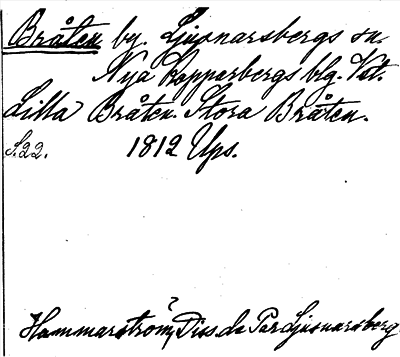 Bråten by. Ljusnarsbergs sn.
Nya Kopparbergs blg. Vstl.
Lilla Bråten. Stora Bråten.
S.22. 1812 Ups.
Hammarström, Diss. de Par Ljusnarsberg